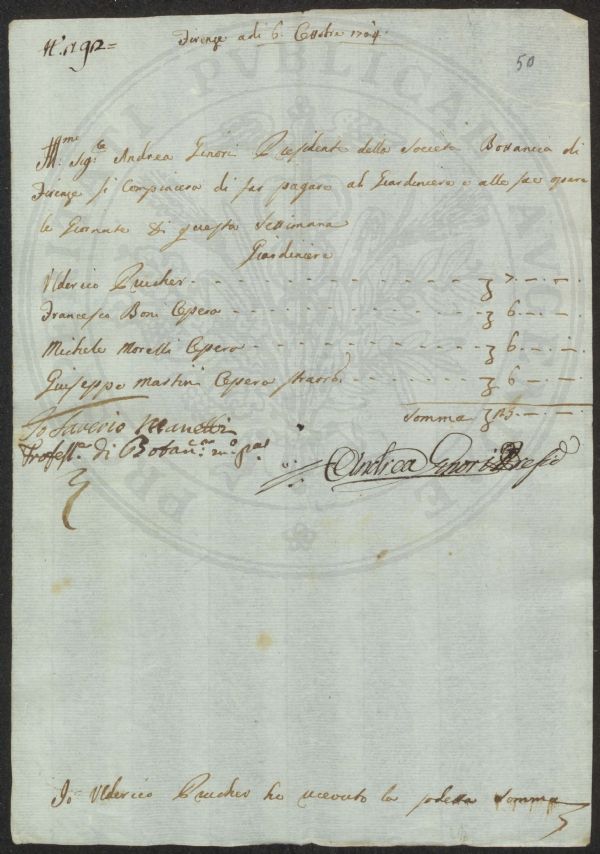 N.° 192=
Firenze adi 6. Ottobre
50
Ill.mo Sig.re Andrea Ginori Presidente della Società Botanica di
Firenze si Compiacera di far pagare al Giardiniere e alle sue opere
le Giornate di questa Settimana
Giardiniere
Ulderico Prucher - - - - - - - 7 - -
Francesco Boni Opera - - - - - - - 6 - -
Michele Morelli Opera - - - - - - - 6 - -
Giuseppe Martini Opera straord. - - - - 6 - -
Somma 25 - -
Io Saverio Manetti
Profess.re di Botan.ca m.o p.a
Andrea Ginori Presid.
Io Ulderico Prucher ho ricevuto la sodetta Somma